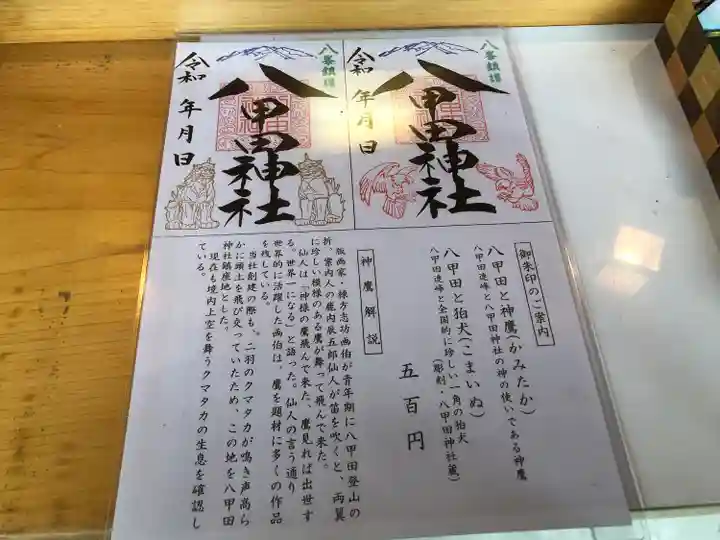 八峯鎮護
八甲田神社
令和 年 月 日
八峯鎮護
八甲田神社
令和 年 月 日
御朱印のご案内
八甲田と神鷹(かみたか)
八甲田連峰と八甲田神社の神の使いである神鷹
八甲田と狛犬(こまいぬ)
八甲田連峰と全国的に珍しい一角の狛犬
(彫刻・八甲田神社蔵)
五百円
神鷹解説
版画家・棟方志功画伯が青年期に八甲田登山の
折、案内人の鹿内辰五郎仙人が笛を吹くと、両翼
に珍しい模様のある鷹が舞って飛んで来た。
仙人は「神様の鷹飛んで来た、鷹見れば出世す
る。世界一になる」と語った。仙人の言う通り
世界的に活躍した画伯は、鷹を題材に多くの作品
を残している。
当社創建の際も、二羽のクマタカが鳴き声高ら
かに頭上を飛び交っていたため、この地を八甲田
神社鎮座地とした。
現在も境内上空を舞うクマタカの生息を確認し
ている。